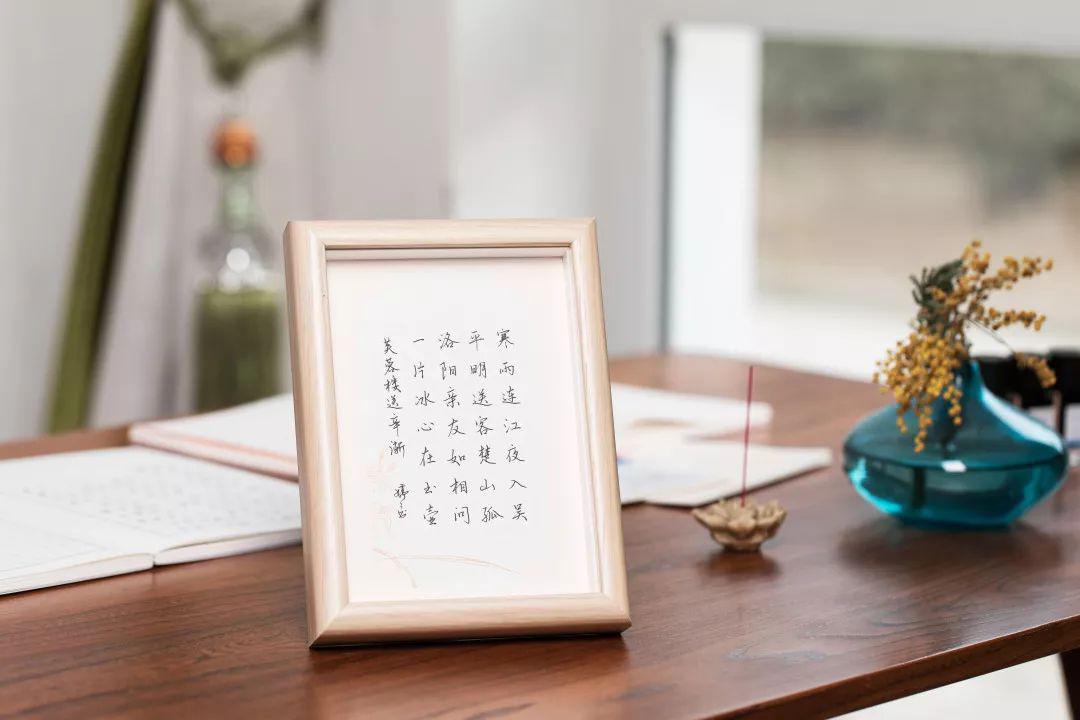 寒雨连江夜入吴
平明送客楚山孤
洛阳亲友如相问
一片冰心在玉壶
芙蓉楼送辛渐